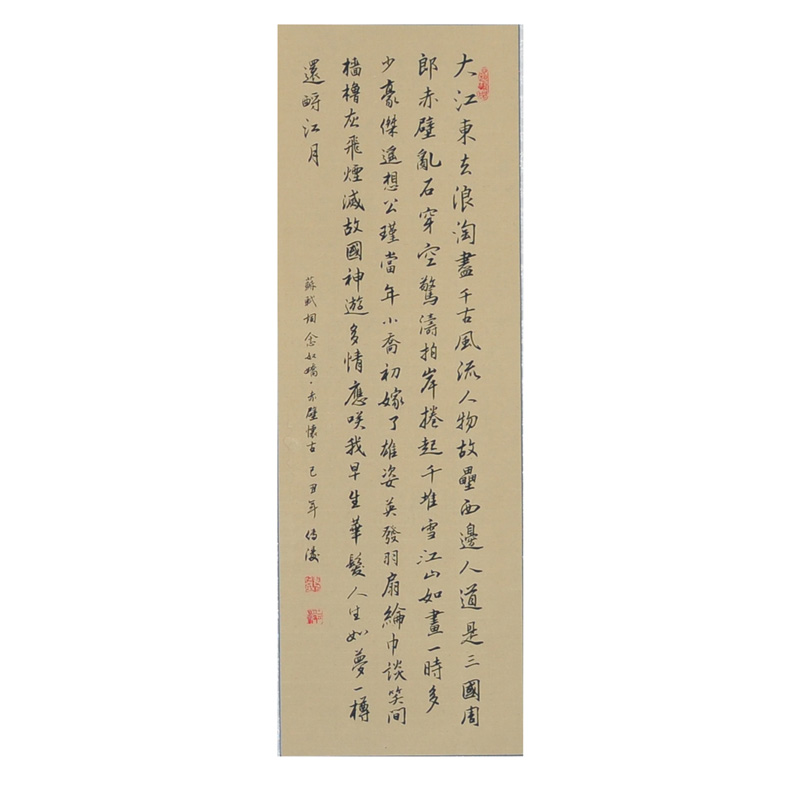 大江東去浪淘盡千古風流人物故壘西邊人道是三國周
郎赤壁亂石穿空驚濤拍岸捲起千堆雪江山如畫一時多
少豪傑遙想公瑾當年小喬初嫁了雄姿英發羽扇綸巾談笑間
檣櫓灰飛煙滅故國神遊多情應咲我早生華髮人生如夢一樽
還酹江月
蘇軾詞念奴嬌·赤壁懷古 己丑年